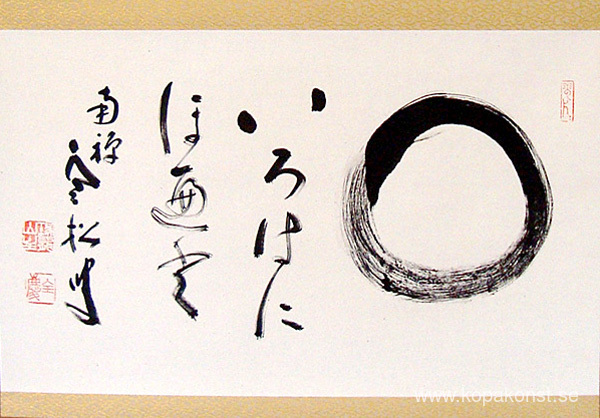 いろはに
ほ遍登
南禅
寒松
全慶
www.kopakonst.se